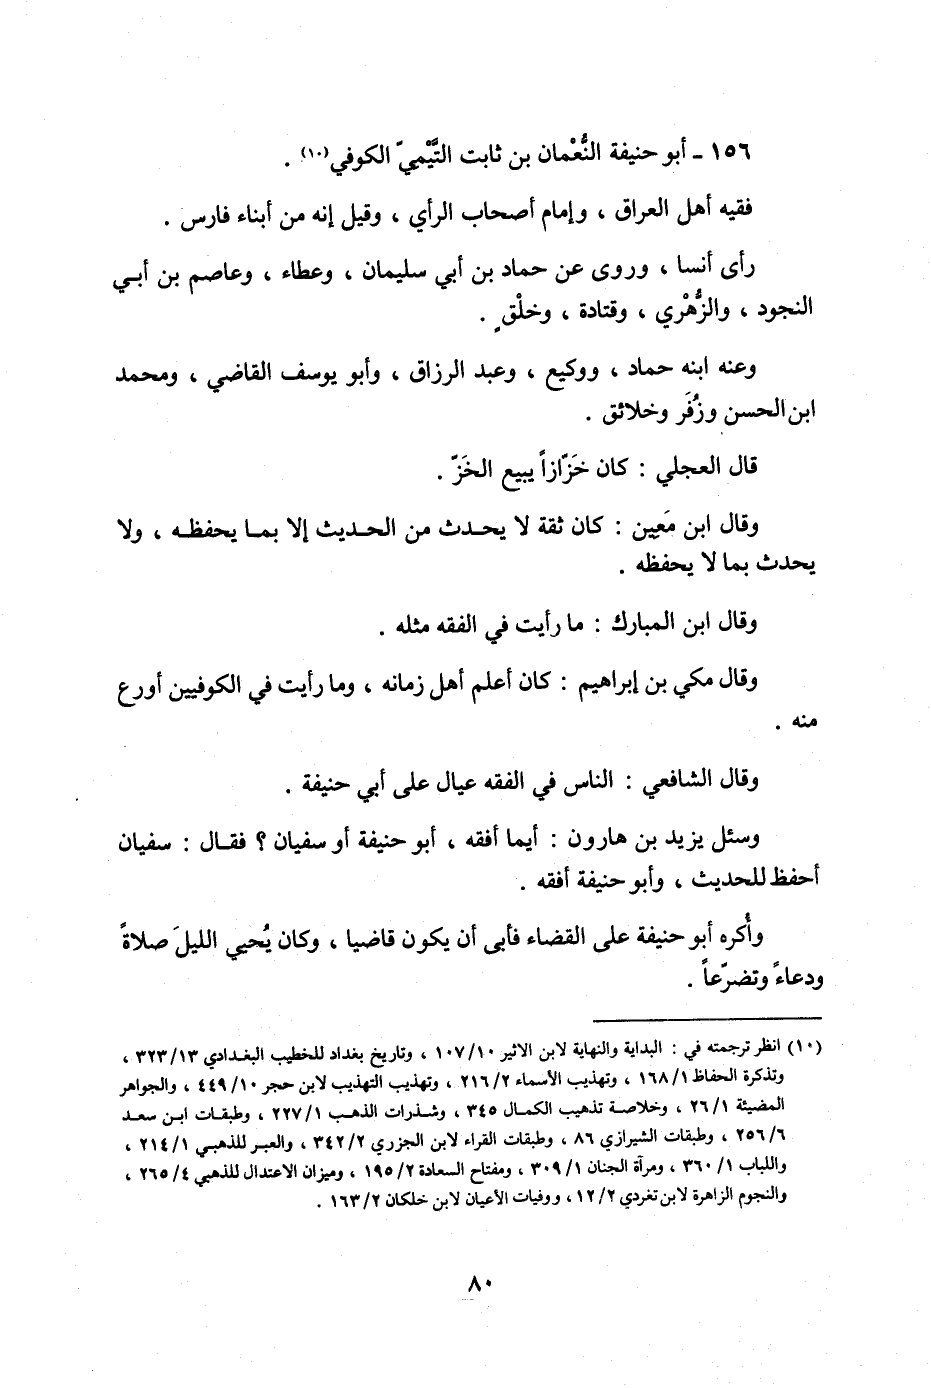 ١٥٦ ـ أبو حنيفة النُّعْمان بن ثابت التَّيْمِيّ الكوفي(١٠) .
فقيه أهل العراق ، وإمام أصحاب الرأي ، وقيل إنه من أبناء فارس .
رأى أنسا ، وروى عن حماد بن أبي سليمان ، وعطاء ، وعاصم بن أبـي
النجود ، والزُّهْري ، وقتادة ، وخلْقٍ .
وعنه ابنه حماد ، ووكيع ، وعبد الرزاق ، وأبو يوسف القاضي ، ومحمد
ابن الحسن وزُفَر وخلائق .
قال العجلي : كان خَزّازاً يبيع الخَزّ .
وقال ابن مَعِين : كان ثقة لا يحـدث من الحـديث إلا بمـا يحفظـه ، ولا
يحدث بما لا يحفظه .
وقال ابن المبارك : ما رأيت في الفقه مثله .
وقال مكي بن إبراهيم : كان أعلم أهل زمانه ، وما رأيت في الكوفيين أورع
منه .
وقال الشافعي : الناس في الفقه عيال على أبي حنيفة .
وسئل يزيد بن هارون : أيما أفقه ، أبو حنيفة أو سفيان ؟ فقـال : سفيان
أحفظ للحديث ، وأبو حنيفة أفقه .
وأُكره أبو حنيفة على القضاء فأبى أن يكون قاضيا ، وكان يُحيي الليلَ صلاةً
ودعاءً وتضرّعاً .
(١٠) انظر ترجمته في : البداية والنهاية لابن الاثير ١٠٧/١٠ ، وتاريخ بغداد للخطيب البغـدادي ٣٢٣/١٣ ،
وتذكرة الحفاظ ١٦٨/١ ، وتهذيب الأسماء ٢١٦/٢ ، وتهذيب التهذيب لابن حجر ٤٤٩/١٠ ، والجواهر
المضيئة ٢٦/١ ، وخلاصة تذهيب الكمـال ٣٤٥ ، وشـذرات الذهـب ٢٢٧/١ ، وطبقـات ابـن سعـد
٢٥٦/٦ ، وطبقات الشيرازي ٨٦ ، وطبقات القراء لابن الجزري ٣٤٢/٢ ، والعبـر للذهبـي ٢١٤/١ ،
واللباب ٣٦٠/١ ، ومرآة الجنان ٣٠٩/١ ، ومفتاح السعادة ١٩٥/٢ ، وميزان الاعتدال للذهبي ٢٦٥/٤ ،
والنجوم الزاهرة لابن تغردي ١٢/٢ ، ووفيات الأعيان لابن خلكان ١٦٣/٢ .
٨٠